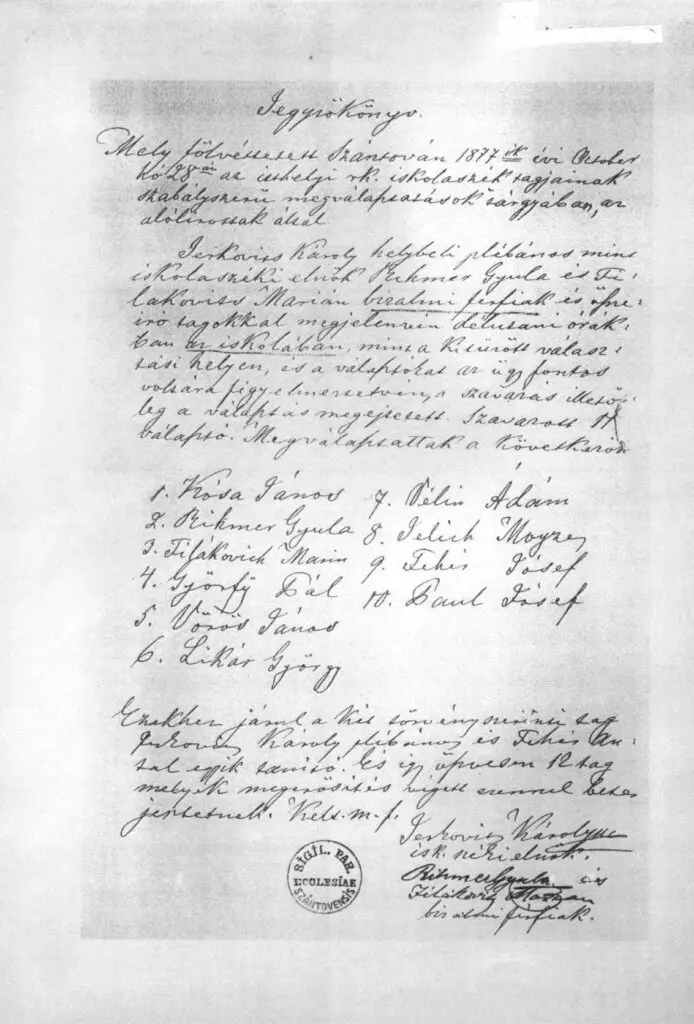 Jegyzőkönyv.
Mely fölvétetett Szántován 1877ik évi October
hó 28-án az itthelyi rk. iskolaszék tagjainak
szabályszerű megválasztatások tárgyában, az
alólirottak által
Jerkovits Károly helybeli plébános mint
iskolaszéki elnök Rihmer Gyula és Fi-
lakovits Marián bizalmi férfiak és
iró tagokkal megjelenvén délutáni órák-
ban az iskolában, mint a kitűzött válasz-
tási helyen, és a választókat az ügy fontos
voltára figyelmeztetvén, a szavazás illető-
leg a választás megejtetett. Szavazott
választó. Megválasztattak a következők
1. Kósa János
2. Rihmer Gyula
3. Filákovich Marin
4. Győrfy Pál
5. Vörös János
6. Likár György
7. Vélin Ádám
8. Jelich Moyzes
9. Fehér Jósef
10. Paul Jósef
Ezekhez járul a két törvényszerinti tag
Jerkovits Károly plébános és Fehér An-
tal egyik tanitó. És igy öszvesen 12 tag
melyek megerősítés végett ezennel beter
jesztetnek. Kelt. m. f.
Jerkovits Károly
isk. széki elnök.
Rihmer Gyula és
Filákovits
bizalmi férfiak.
SIGIL. PAR.
ECCLESIAE
SZÁNTOVENSIS